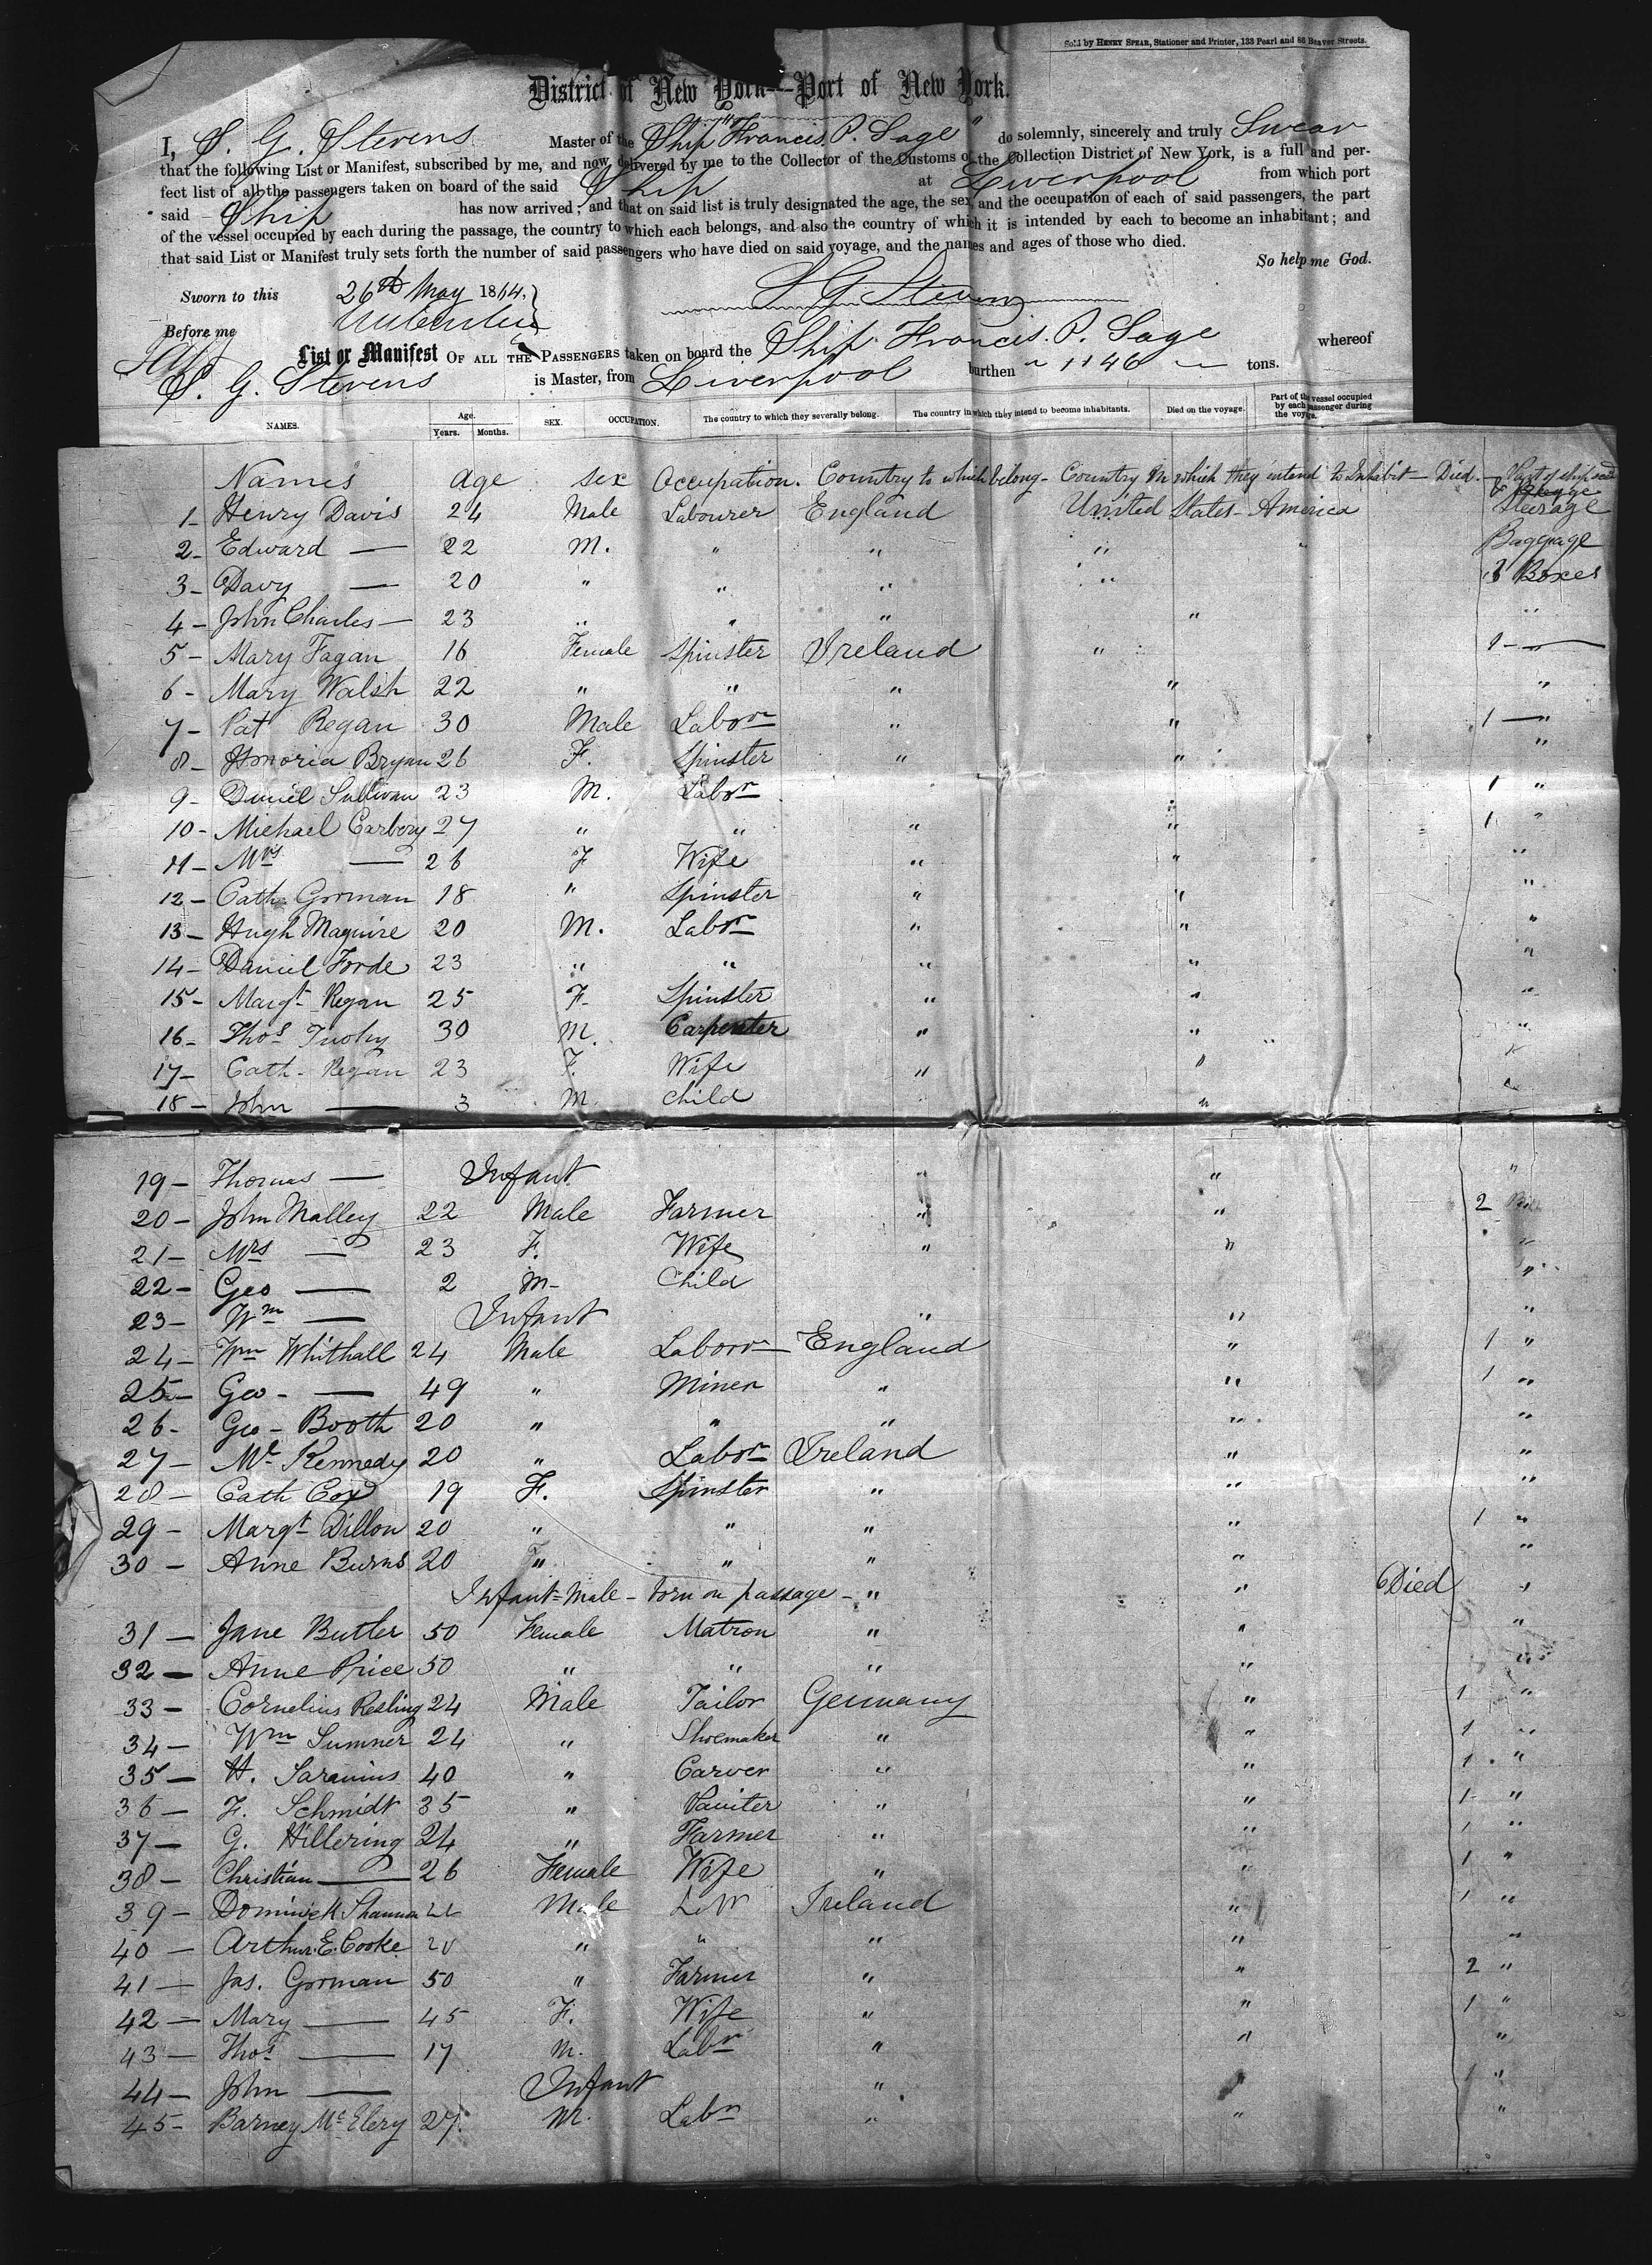 Sold by HENRY SPEAR, Stationer and Printer, 133 Pearl and 86 Beaver Streets.
District of New York—Port of New York.
I, S. G. Stevens Master of the Ship "Francis. P. Sage" do solemnly, sincerely and truly Swear
that the following List or Manifest, subscribed by me, and now delivered by me to the Collector of the Customs of the Collection District of New York, is a full and per-
fect list of all the passengers taken on board of the said Ship at Liverpool from which port
said Ship has now arrived; and that on said list is truly designated the age, the sex, and the occupation of each of said passengers, the part
of the vessel occupied by each during the passage, the country to which each belongs, and also the country of which it is intended by each to become an inhabitant; and
that said List or Manifest truly sets forth the number of said passengers who have died on said voyage, and the names and ages of those who died.
So help me God.
Sworn to this 26th May 1864. S G Stevens
Before me
List or Manifest OF ALL THE PASSENGERS taken on board the Ship Francis. P. Sage whereof
S. G. Stevens is Master, from Liverpool burthen 1146 tons.
NAMES. Age. Years. Months. SEX. OCCUPATION. The country to which they severally belong. The country in which they intend to become inhabitants. Died on the voyage. Part of the vessel occupied by each passenger during the voyage.
Names age sex Occupation. Country to which belong - Country in which they intend to Inhabit - Died. - Part of ship
1- Henry Davis 24 Male Labourer England United States - America Steerage
2- Edward — 22 M. " " " " Baggage
3- Davy — 20 " " " " 3 Boxes
4- John Charles — 23 " " " " "
5- Mary Fagan 16 Female Spinster Ireland " 1 - "
6- Mary Walsh 22 " " " " "
7- Pat Regan 30 Male Labor " " 1 - "
8- Honoria Bryan 26 F. Spinster " " "
9- Daniel Sullivan 23 M. Labor " 1 "
10- Michael Carbery 27 " " " " 1 "
11- Mrs — 26 F Wife " " "
12- Cath. Gorman 18 " Spinster " " "
13- Hugh Maguire 20 M. Labor " " "
14- Daniel Forde 23 " " " " "
15- Margt Regan 25 F. Spinster " " "
16- Thos Tuohy 30 M. Carpenter " " "
17- Cath- Regan 23 F. Wife " " "
18- John — 3 M. Child " "
19- Thomas — Infant " " "
20- John Malley 22 Male Farmer " " 2
21- Mrs — 23 F. Wife " " "
22- Geo — 2 M- Child "
23- Wm — Infant " " "
24- Wm Whithall 24 Male Labour England " 1 "
25- Geo - — 49 " Miner " " 1 "
26- Geo - Booth 20 " " " " "
27- Kennedy 20 " Labor Ireland " "
28- Cath Cox 19 F. Spinster " " "
29- Margt Dillon 20 " " " " 1 "
30- Anne Burns 20 " " " " "
Infant - Male - born on passage - " " Died "
31- Jane Butler 50 Female Matron " " "
32- Anne Price 50 " " " " "
33- Cornelius Resling 24 Male Tailor Germany " 1 "
34- Wm Sumner 24 " Shoemaker " " 1 "
35- H. 40 " Carver " " 1 "
36- F. Schmidt 35 " Painter " " 1 "
37- G. Hillering 24 " Farmer " " 1 "
38- Christian — 26 Female Wife " " 1 "
39- Dominick 22 Male Ireland " 1 "
40- Arthur. E. Cooke 20 " " " " "
41- Jas. Gorman 50 " Farmer " " 2 "
42- Mary — 45 F. Wife " " 1 "
43- Thos — 17 M. Labr " " "
44- John — Infant " " 1 "
45- Barney McElery 27 M. Labr " " "